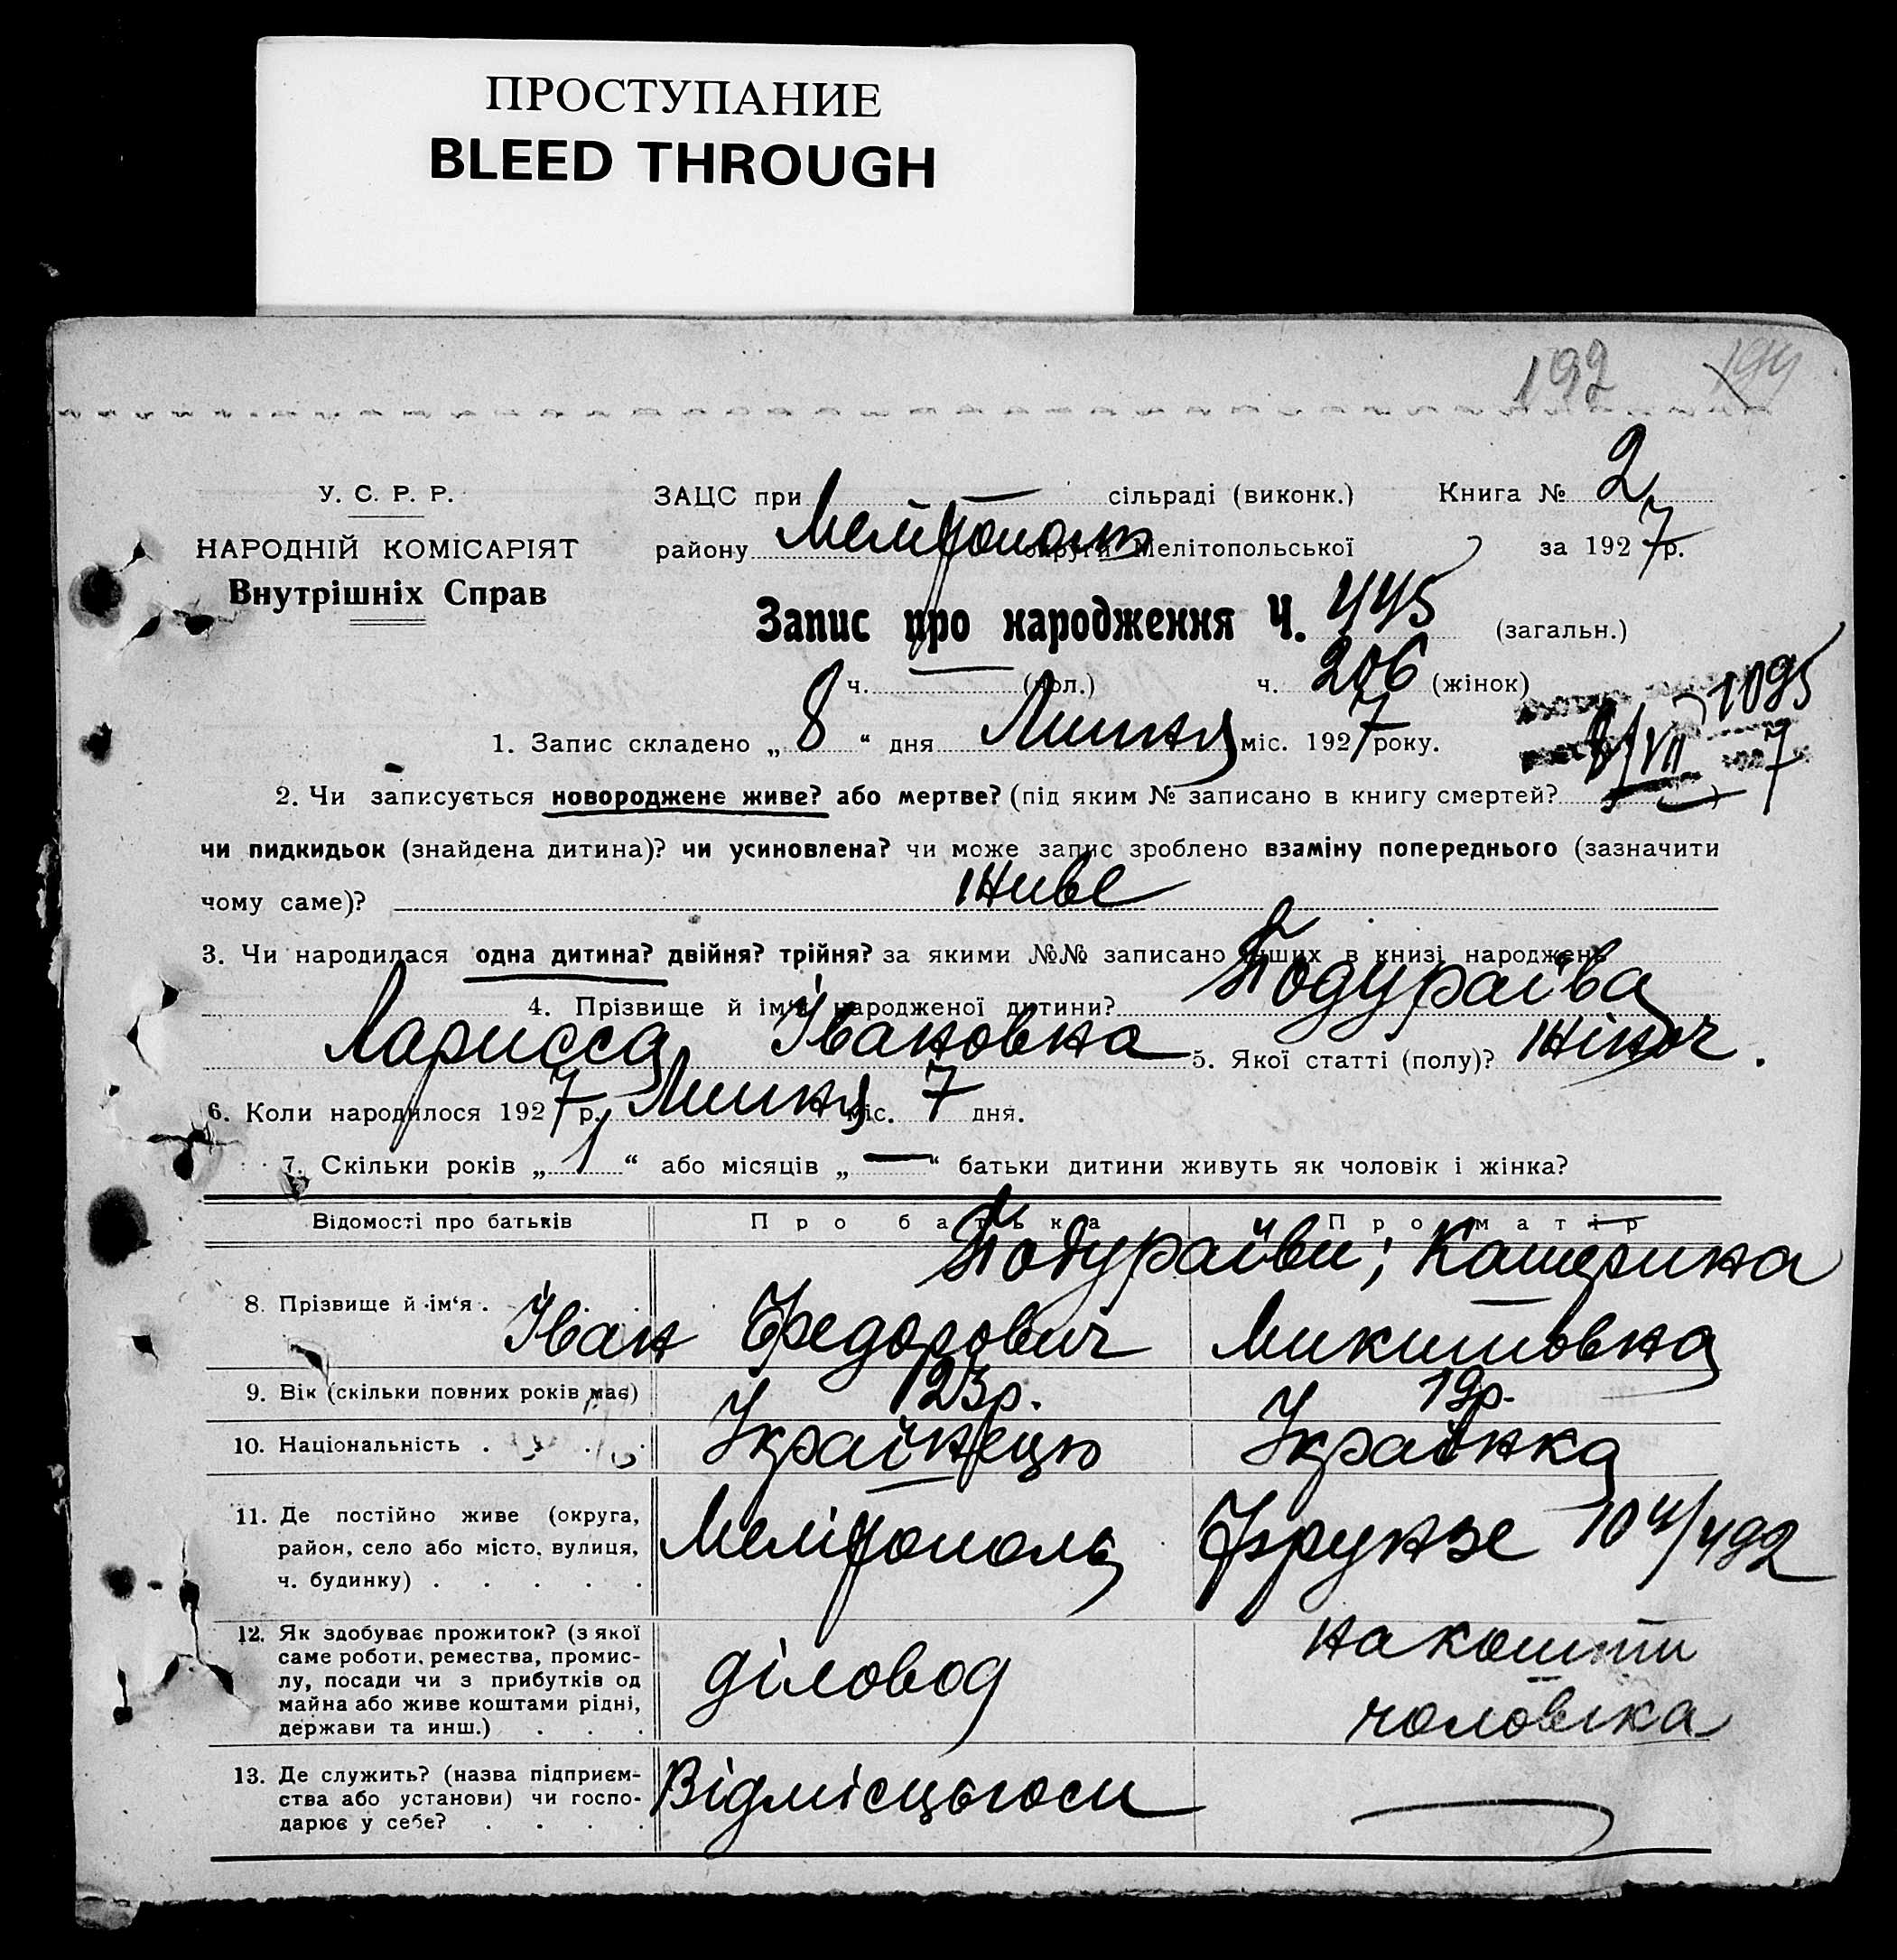 ПРОСТУПАНИЕ
BLEED THROUGH
192 194
У. С. Р. Р.
НАРОДНІЙ КОМІСАРІЯТ
Внутрішніх Справ
ЗАЦС при — сільраді (виконк.) Книга № 2
району Мелітополь округи Мелітопольської за 1927 р.
Запис про народження Ч. 445 (загальн.)
ч. — (чол.) ч. 206 (жінок)
1095
8/VII 7
1. Запис складено „ 8 “ дня Липня міс. 1927 року.
2. Чи записується новороджене живе? або мертве? (під яким № записано в книгу смертей? )
чи пидкидьок (знайдена дитина)? чи усиновлена? чи може запис зроблено взаміну попереднього (зазначити
чому саме)? Живе
3. Чи народилася одна дитина? двійня? трійня? за якими №№ записано інших в книзі народжень
4. Прізвище й ім‘я народженої дитини? Подураїва
Ларисса Івановна 5. Якої статті (полу)? Жіноч.
6. Коли народилося 1927 р. Липня міс. 7 дня.
7. Скільки років „ 1 “ або місяців „ — “ батьки дитини живуть як чоловік і жінка?
Відомості про батьків Про батька Про матір
Подураїви; Катерина
8. Прізвище й ім‘я . . . Іван Федорович Микитовна
9. Вік (скільки повних років має) 23р. 19р.
10. Національність . . . . Українець Українка
11. Де постійно живе (округа,
район, село або місто, вулиця,
ч. будинку) . . . . . Мелітополь Фрунзе 104/492
12. Як здобуває прожиток? (з якої
саме роботи, ремества, промис-
лу, посади чи з прибутків од
майна або живе коштами рідні,
держави та инш.) . . . діловод на кошти
чоловіка
13. Де служить? (назва підприєм-
ства або установи) чи госпо-
дарює у себе? . . . . Відмісцьгосп —